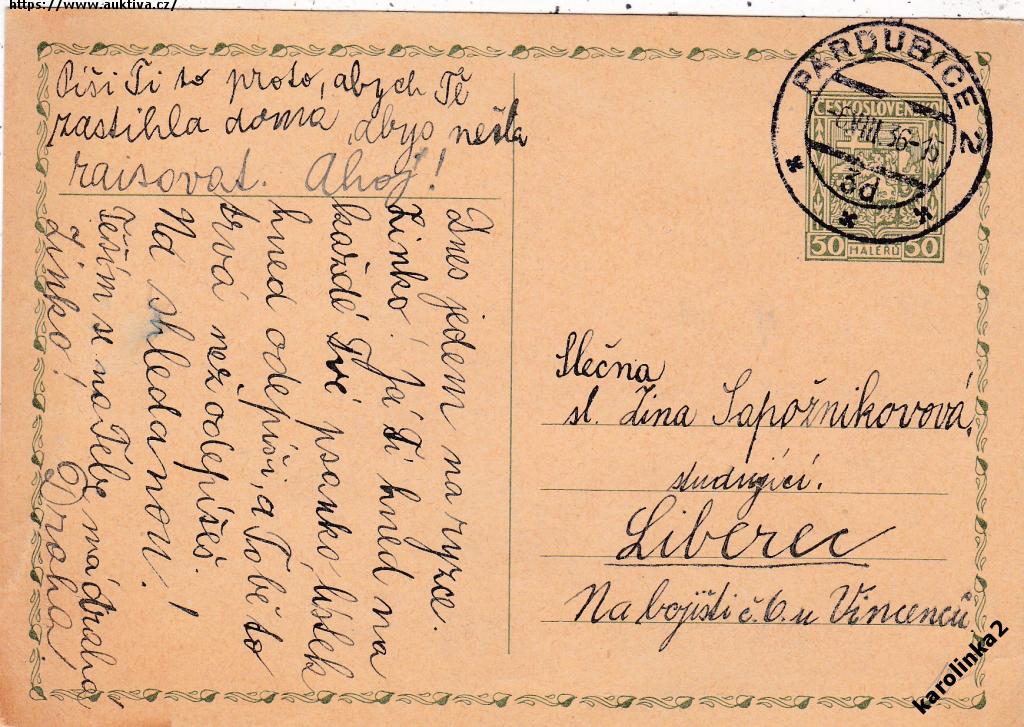 https://www.auktiva.cz/
Píši Ti to proto, abych Tě
zastihla doma abys nešla
raisovat. Ahoj!
Dnes jedem na ryzce.
Zinko! Já Ti hned na
každé Tvé psanko, lístek
hned odepíši, a Tobě to
trvá než odepíšeš.
Na shledanou!
Těším se na Tebe má drahá
Zinko!
PARDUBICE 2
VIII 36-15
3d
ČESKOSLOVENSKO
50 HALÉŘŮ 50
Slečna
sl. Zina Sapožnikovová,
studující.
Liberec
Na bojišti č 6. u Vincenců
karolinka2